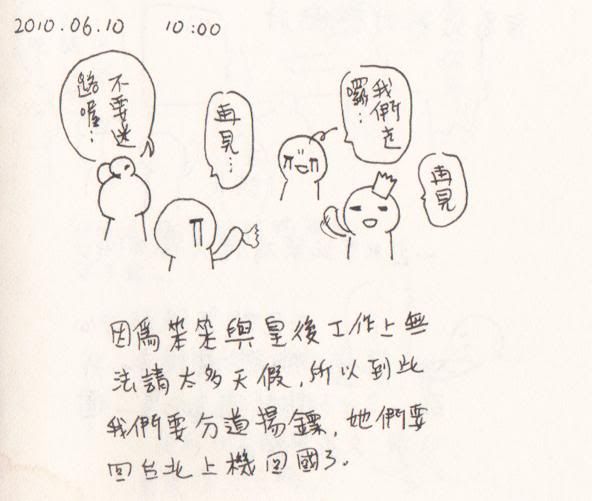 2010.06.10 10:00
不要迷
路喔…
再見…
我們走
囉…
再見
因為笨笨與皇後工作上無
法請太多天假,所以到此
我們要分道揚鑣,她們要
回台北上機回國了。